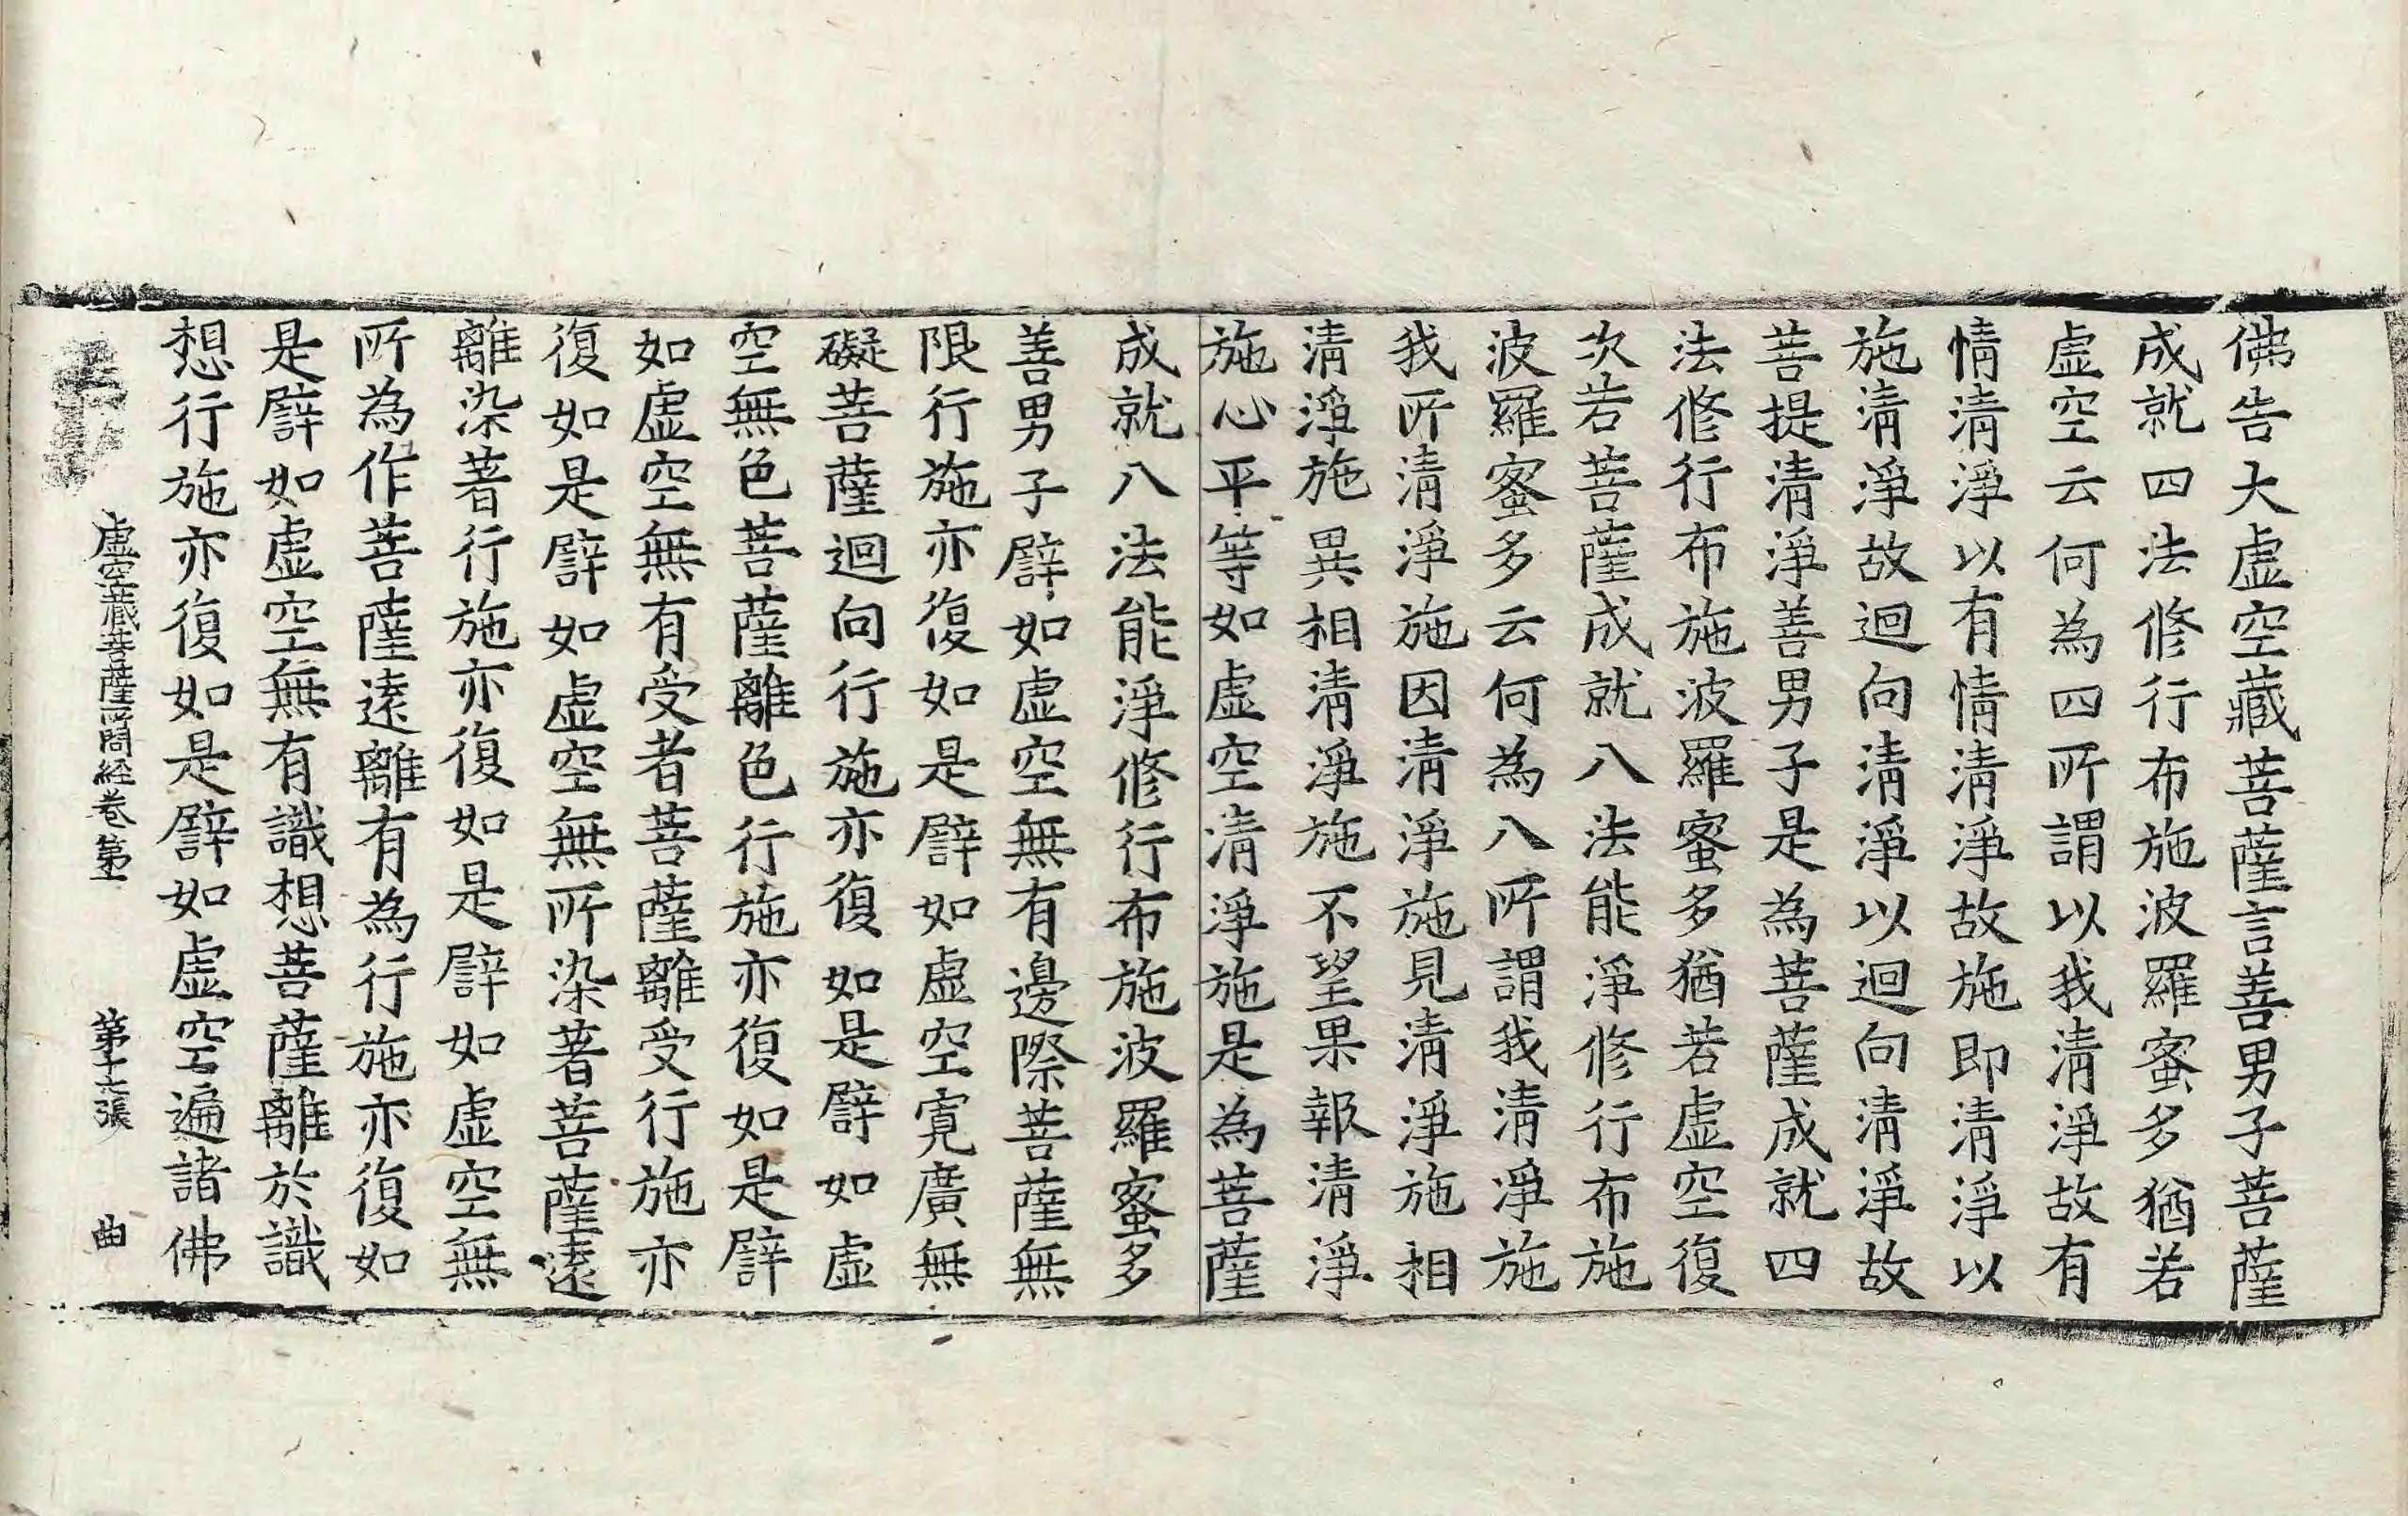 佛告大虛空藏菩薩言善男子菩薩
成就四法修行布施波羅蜜多猶若
虛空云何為四所謂以我清淨故有
情清淨以有情清淨故施即清淨以
施清淨故迴向清淨以迴向清淨故
菩提清淨善男子是為菩薩成就四
法修行布施波羅蜜多猶若虛空復
次若菩薩成就八法能淨修行布施
波羅蜜多云何為八所謂我清淨施
我所清淨施因清淨施見清淨施相
清淨施異相清淨施不望果報清淨
施心平等如虛空清淨施是為菩薩
成就八法能淨修行布施波羅蜜多
善男子譬如虛空無有邊際菩薩無
限行施亦復如是譬如虛空寬廣無
礙菩薩迴向行施亦復如是譬如虛
空無色菩薩離色行施亦復如是譬
如虛空無有受者菩薩離受行施亦
復如是譬如虛空無所染著菩薩遠
離染著行施亦復如是譬如虛空無
所為作菩薩遠離有為行施亦復如
是譬如虛空無有識想菩薩離於識
想行施亦復如是譬如虛空遍諸佛
虛空藏菩薩所問経卷第 第十六張 曲